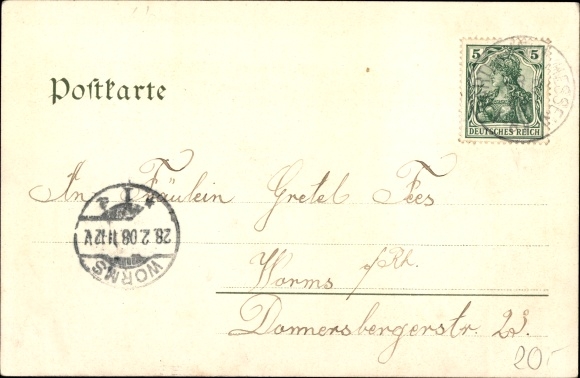 Postkarte
5 5
DEUTSCHES REICH
An Fräulein Gretel Fees
Worms a/Rh.
Donnersbergerstr.
WORMS
28.2.08.11-12V.
1
20.-